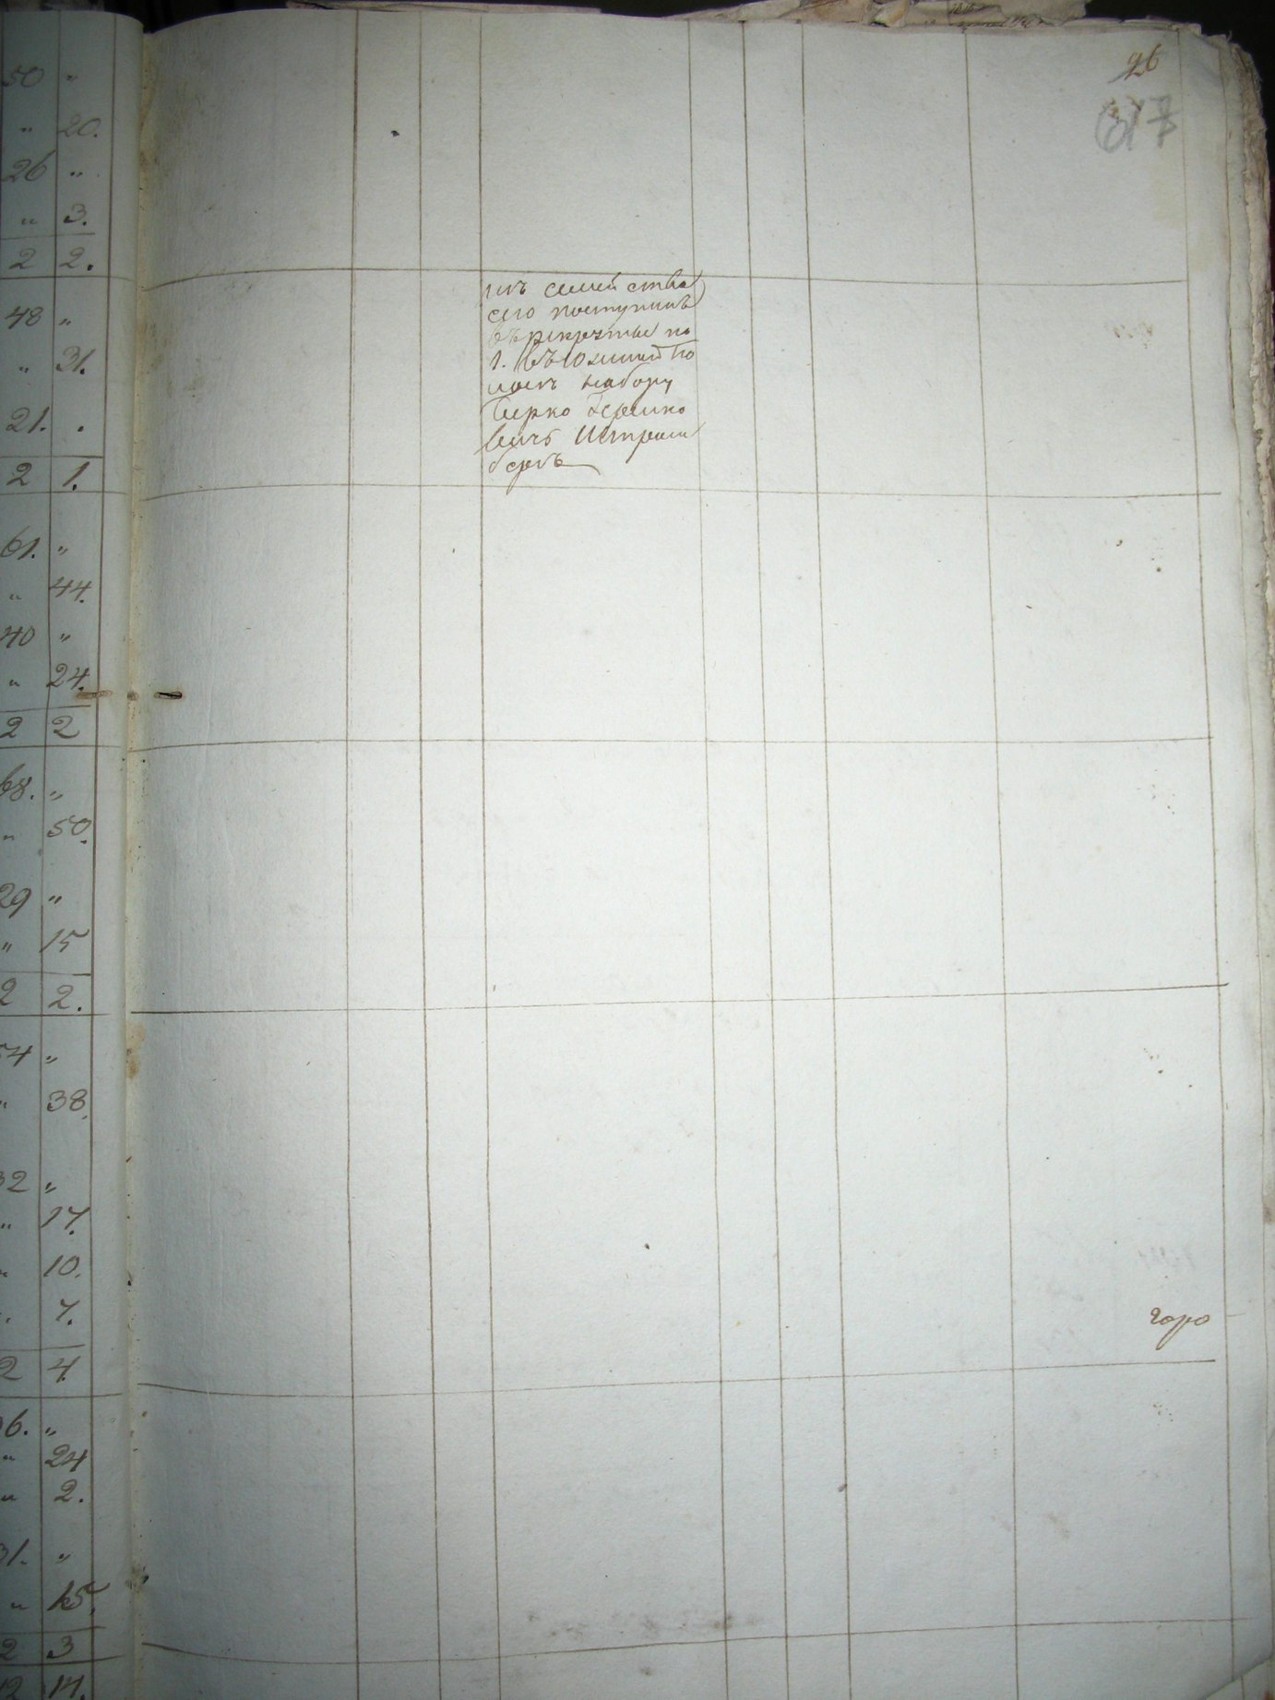 50 "
" 20.
26 "
" 3.
2 2.
48 "
" 31.
21. .
2 1.
61. "
" 44.
40 "
" 24.
2 2
68. "
" 50.
29 "
" 15
2 2.
54 "
" 38.
32 "
" 17.
" 10.
" 7.
2 4
"
" 24
" 2.
31. "
" 15.
2 3
12 14.
26
617
изъ семейства
сего поступилъ
въ рекруты по
1.
набору
Берко Гершко
вичъ Штрам
бергъ